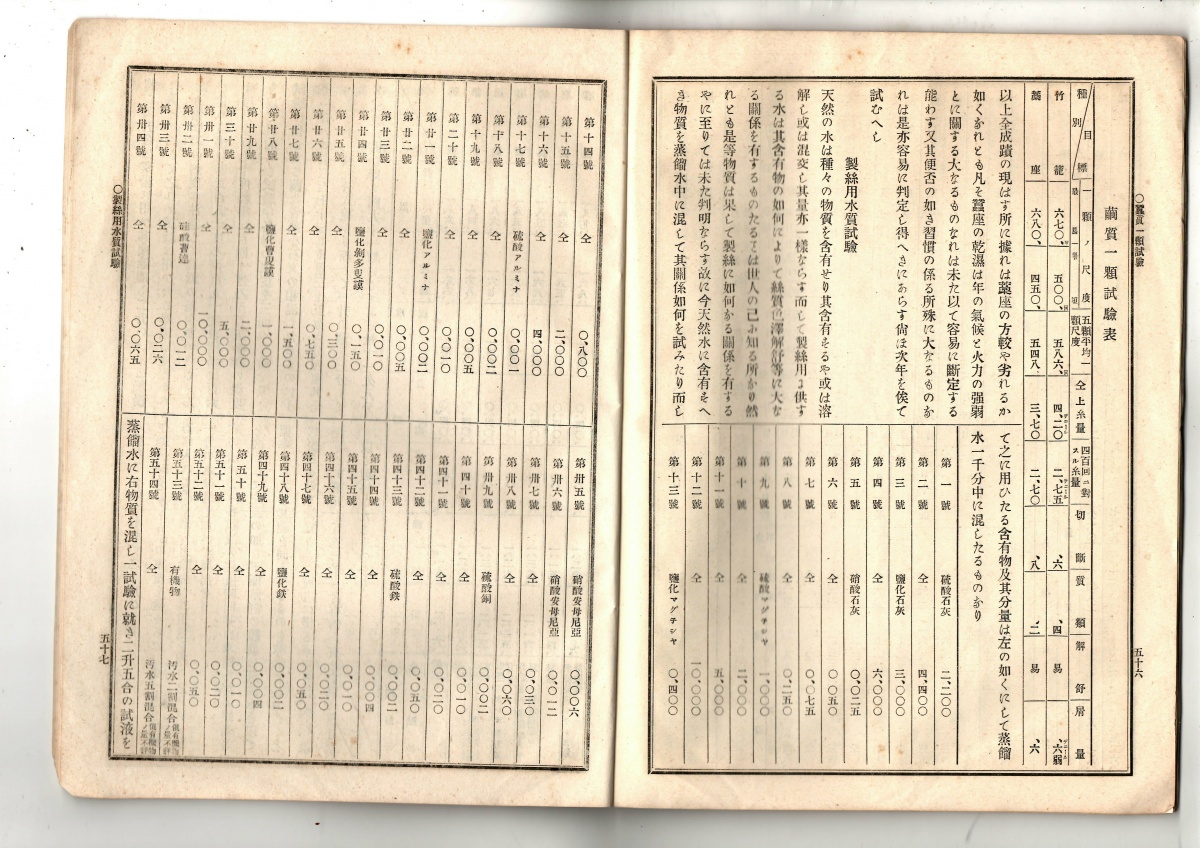 五十六
繭質一顆試驗表
種別 目標 一顆ノ尺度 五顆平均一顆尺度 仝上糸量 四百回ニ對スル糸量 切斷 類節 解舒 屑量
竹籠 六七〇、 五〇〇、 五八六、 四、二〇 二、七五 、六 、四 易 、六弱
蓐座 六八〇、 四五〇、 五四八、 三、七〇 二、七〇 、八 、二 易 、六
以上全成蹟の現はす所に據れは蓐座の方較や劣れるか
如くなれとも凡そ蠶座の乾濕は年の氣候と火力の强弱
とに關する大なるものなれは未た以て容易に斷定する
能わす又其便否の如き習慣の係る所殊に大なるものな
れは是亦容易に判定し得へきにあらす尙ほ次年を俟て
試むへし
製絲用水質試驗
天然の水は種々の物質を含有せり其含有をるや或は溶
解し或は混交し其量亦一樣ならす而して製絲用に供す
る水は其含有物の如何によりて絲質色澤解舒等に大な
る關係を有するものたるとは世人の已に知る所なり然
れとも是等物質は果して製絲に如何なる關係を有する
やに至りては未た判明ならす故に今天然水に含有をへ
き物質を蒸餾水中に混して其關係如何を試みたり而し
て之に用ひたる含有物及其分量は左の如くにして蒸餾
水一千分中に混したるものなり
第一號 硫酸石灰 二、二〇〇〇
第二號 仝 四、四〇〇〇
第三號 鹽化石灰 三、〇〇〇〇
第四號 仝 六、〇〇〇〇
第五號 硝酸石灰 〇、〇二五
第六號 仝 〇、〇五〇
第七號 仝 〇、〇七五
第八號 仝 〇、二五〇
第九號 硫酸マグチシヤ 一、〇〇〇〇
第十號 仝 二、〇〇〇〇
第十一號 仝 五、〇〇〇〇
第十二號 仝 一〇、〇〇〇〇
第十三號 鹽化マグチシヤ 〇、四〇〇〇
○製絲用水質試驗
五十七
第十四號 仝 〇、八〇〇〇
第十五號 仝 二、〇〇〇〇
第十六號 仝 四、〇〇〇〇
第十七號 硫酸アルミナ 〇、〇〇一
第十八號 仝 〇、〇〇〇二
第十九號 仝 〇、〇〇〇五
第二十號 仝 〇、〇〇一〇
第廿一號 鹽化アルミナ 〇、〇〇〇二
第廿二號 仝 〇、〇〇〇五
第廿三號 仝 〇、〇〇一〇
第廿四號 〇、一五〇
第廿五號 仝 〇、三〇〇
第廿六號 仝 〇、七五〇
第廿七號 仝 一、五〇〇
第廿八號 鹽化曹叟謨 一、〇〇〇〇
第廿九號 仝 二、〇〇〇〇
第三十號 仝 五、〇〇〇〇
第卅一號 仝 一〇、〇〇〇〇
第卅二號 硅酸曹達 〇、〇一二
第卅三號 仝 〇、〇二六
第卅四號 仝 〇、〇六五
第卅五號 硝酸安母尼亞 〇、〇〇〇六
第卅六號 硝酸安母尼亞 〇、〇一二
第卅七號 仝 〇、〇三〇
第卅八號 仝 〇、〇六〇
第卅九號 硫酸銅 〇、〇〇〇二
第四十號 仝 〇、〇〇一〇
第四十一號 仝 〇、〇〇二〇
第四十二號 仝 〇、〇〇五〇
第四十三號 硫酸鉄 〇、〇〇〇二
第四十四號 仝 〇、〇〇〇四
第四十五號 仝 〇、〇〇一〇
第四十六號 仝 〇、〇〇二〇
第四十七號 仝 〇、〇〇五〇
第四十八號 鹽化鉄 〇、〇〇〇二
第四十九號 仝 〇、〇〇〇四
第五十號 仝 〇、〇〇一〇
第五十一號 仝 〇、〇〇二〇
第五十二號 仝 〇、〇〇五〇
第五十三號 有機物 汚水二割混合
第五十四號 仝 汚水五割混合
蒸餾水に右物質を混し一試驗に就き二升五合の試液を